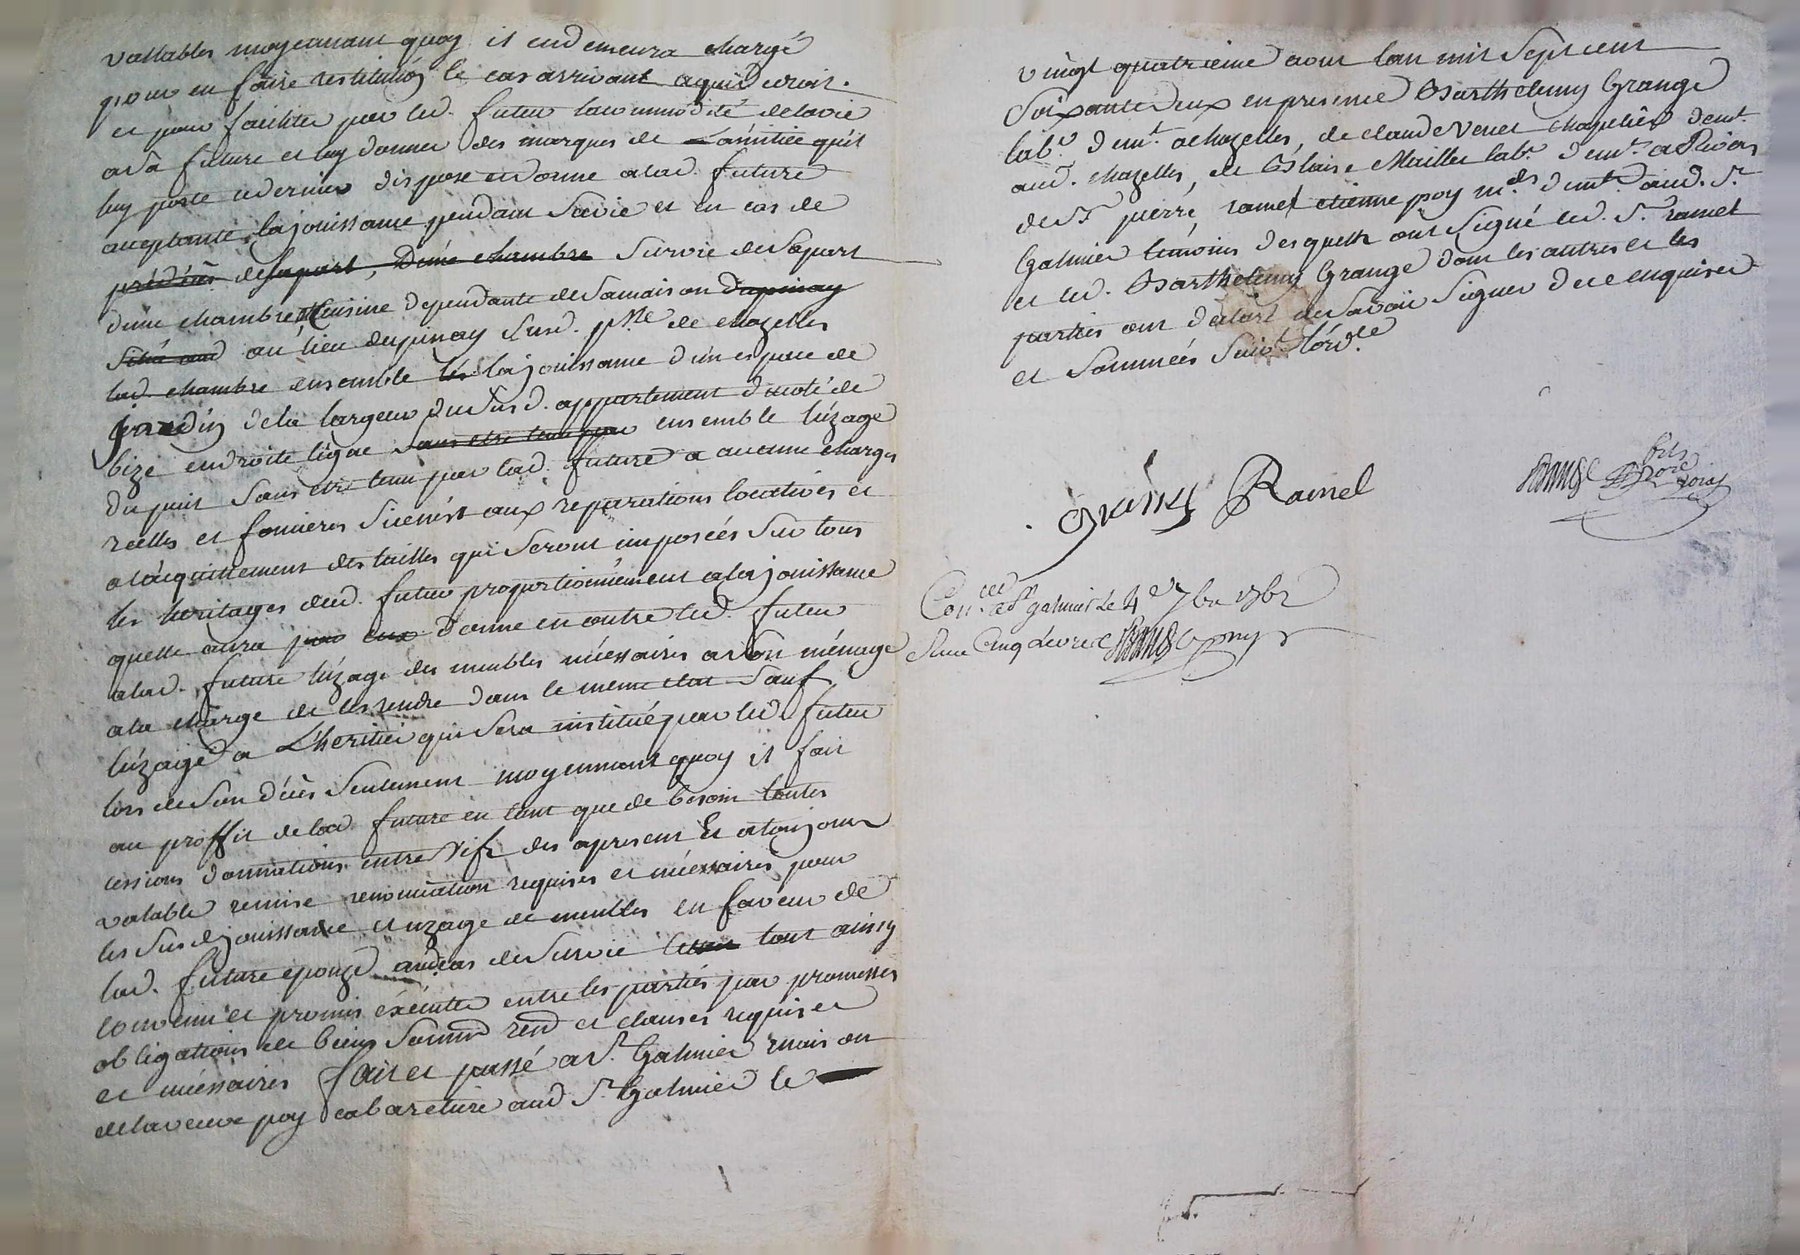 vallables moyennant quoy il endemeura chargé
pour en faire restitution le cas arrivant aquidevoir.
et pour faciliter par led. futur lacommodité delavie
asa future et luy donner des marques de Lamitiée quil
luy porte cedernier dispose endonne alad. future
acceptante lajouissance pendant Savie et en cas de
prédécés desapart, D'une chambre Survie deSapart
dune chambre et Cuisine dependante deSamaison dupinay
Situé aud au lieu dupinay Susd. psse de chazelles
lad. chambre ensemble les lajouissance d'un espace de
jardin dela largeur duSusd. appartement ducoté de
bize endroite ligne Sans etre tenu par ensemble luzage
du puit Sans etre tenu par lad. future a aucune charges
réelles et foncieres Sicen'est aux reparations locatives et
alacquittement des tailles qui Seront imposées Sur tous
les heritages dud. futur proportionnément alajouissance
quelle aura pour eux donne en outre led. futur
alad. future luzage des meubles nécessaires aSon ménage
ala charge de les rendre dans le meme etat Sauf
luzage a L'heritier qui Sera institué par led. futur
lors deSon décés Seulement moyennant quoy il fait
au proffit delad. future en tant que de besoin toutes
cessions donnations entre Vifs des apresent Et atoujours
valable remise renonciation requises et nécessaires pour
les Susd. jouissance et uzage de meubles en faveur de
lad. future epouze audcas deSurvie tout ainsy
convenu et promis éxécuter entre les parties par promesses
obligations de biens Soumn rend et clauses requises
et nécessaires fait et passé a St. Galmier maison
delaveuve poy cabaretiere aud St. Galmier le
vingt quatrieme aout lan mil Sept cent
Soixante deux en presence Barthelemy Grange
labr. demt. achazelles, de claude Venet chapelier demt.
aud. chazelles, de Blaise Mailler labr. demt. a Rivas
de Sr pierre ramel etienne poy mds demts. aud. St.
Galmier temoins desquels ont Signé led. Sr. ramel
et led. Barthelemy Grange dont les autres et les
parties ont déclaré ne Savoir Signer de ce enquises
et Sommées Suivt. lórdce
Grange Ramel
Conlé a St galmier Le 4e 7bre 1762
Reçu Cinq Livres